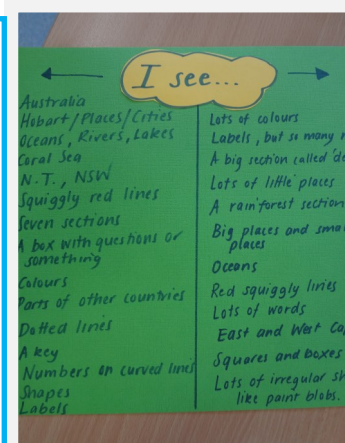 I see...
Australia
Hobart/Places/Cities
Oceans, Rivers, Lakes
Coral Sea
N.T., NSW
Squiggly red lines
Seven sections
A box with questions or
something
Colours
Parts of other countries
Dotted lines
A key
Numbers on curved lines
Shapes
Labels
Lots of colours
Labels, but so many
A big section called
Lots of little places
A rainforest section
Big places and
places
Oceans
Red squiggly lines
Lots of words
East and West
Squares and boxes
Lots of irregular
like paint blobs.